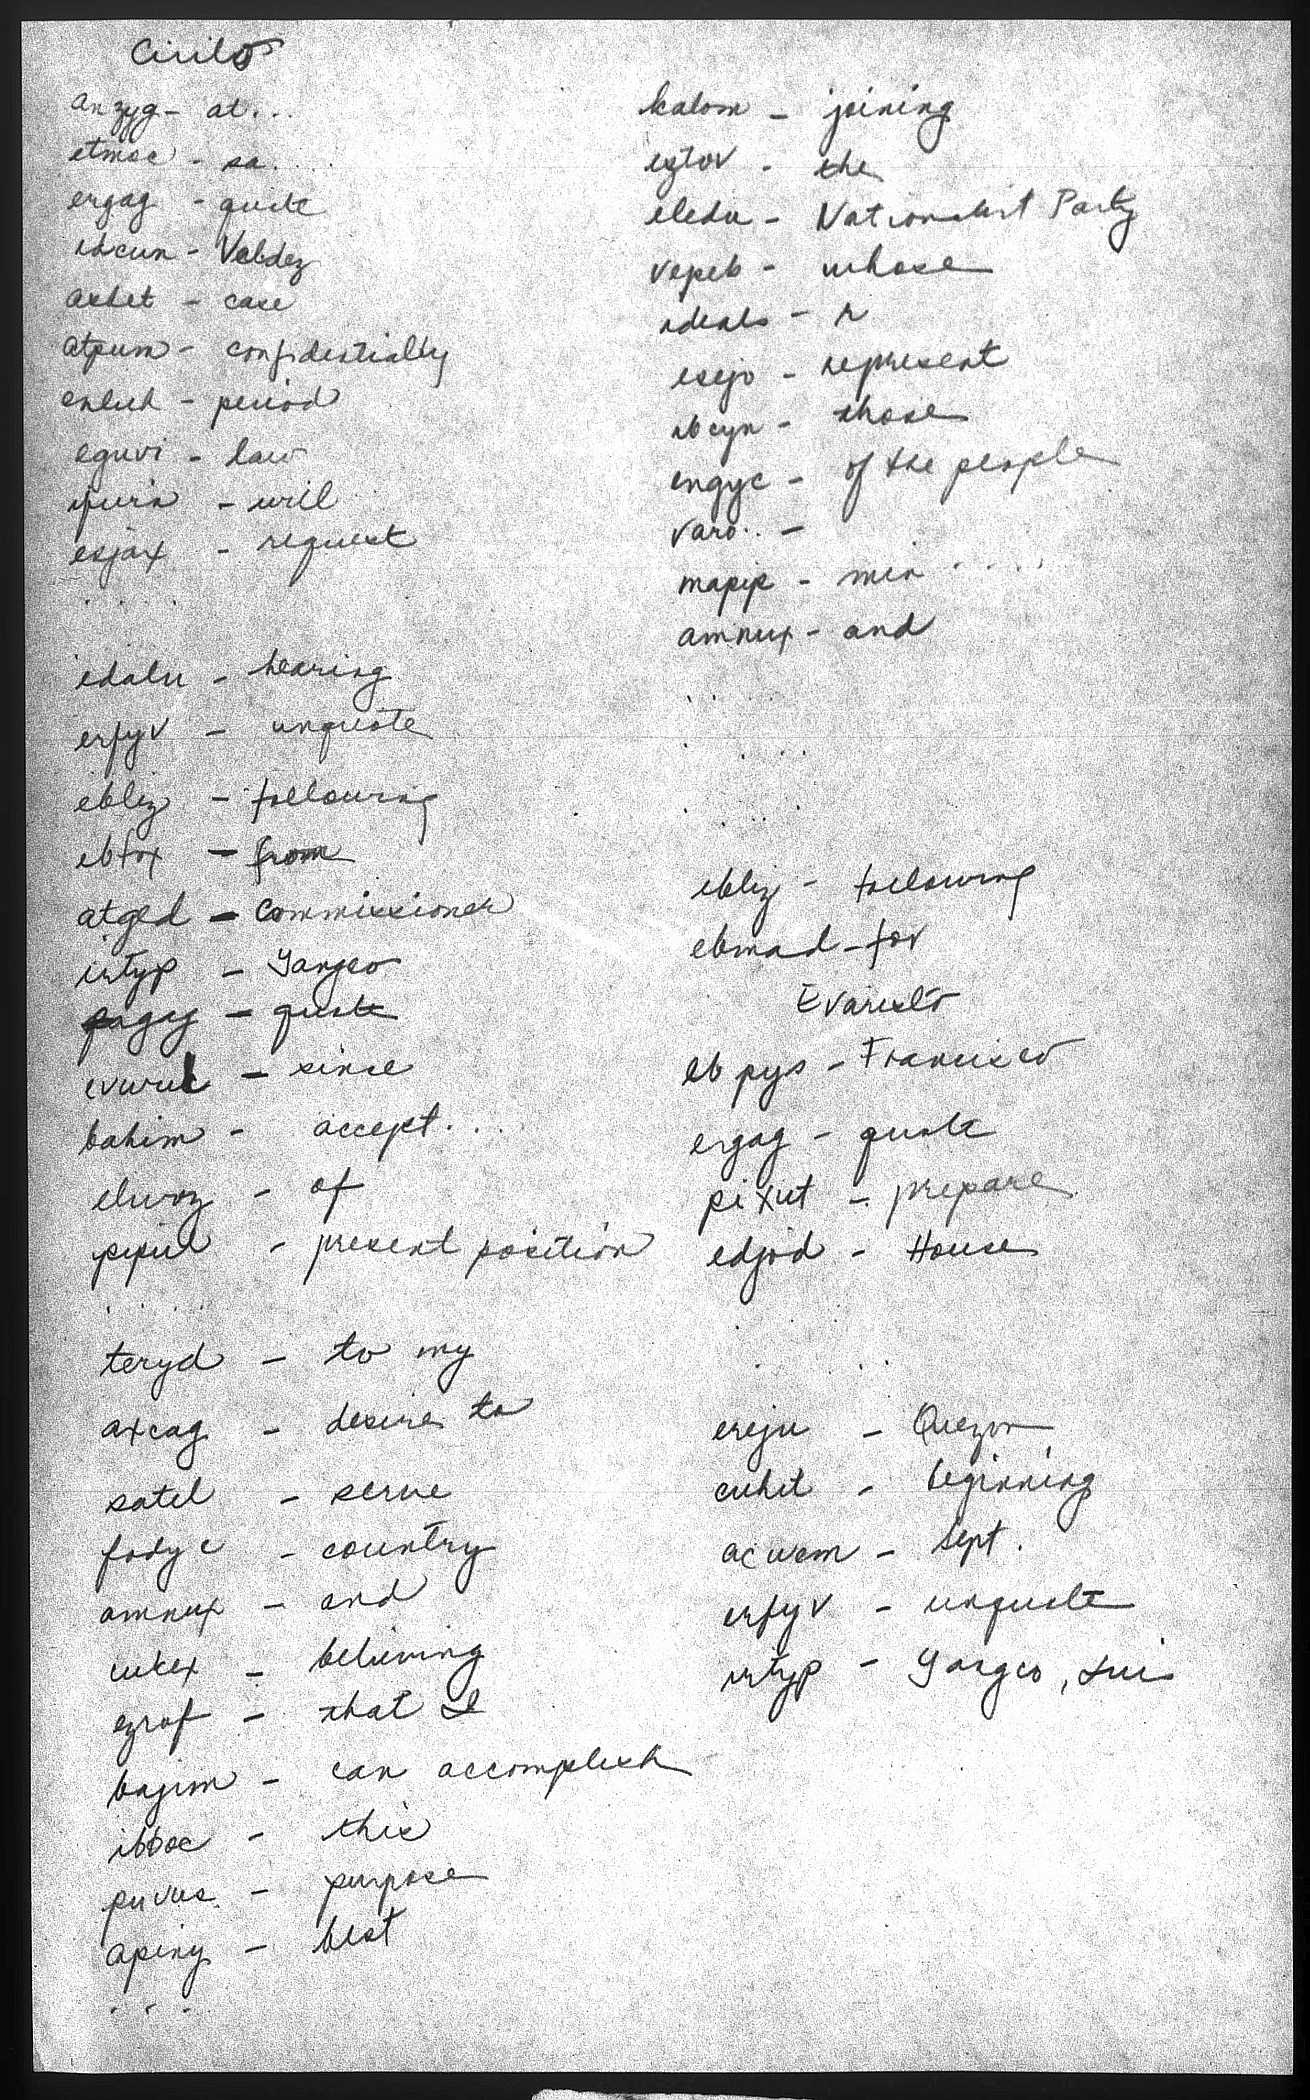 Cirilo
anzyg - at...
etmoc - sa....
ergag - quote
idcun - Valdez
axhet - case
atpum - confidentially
enluh - period
eguvi - law
- will
esjax - request
....
edalu - hearing
erfyv - unquote
ebliz - following
ebfox - from
atged - Commissioner
irtyp - Yangco
- quote
- since
bahim - accept...
elwoz - of
pipul - present position
.....
teryd - to my
axcag - desire to
satel - serve
fodyc - country
amnux - and
- believing
ezrof - that I
bajim - can accomplish
ibboc - this
puvus - purpose
apiny - best
...
kalom - joining
eztov - the
eledu - Nationalist Party
vepeb - whose
- r
esejo - represent
ibcyn - those
engyc - of the people
varo.. -
mapip - men ....
amnux - and
ebliz - following
ebmad - for
Evaristo
ebpys - Francisco
ergag - quote
pixut - prepare
edjod - House
ereju - Quezon
cuhit - beginning
acucm - Sept.
erfyv - unquote
irtyp - Yangco, Luis